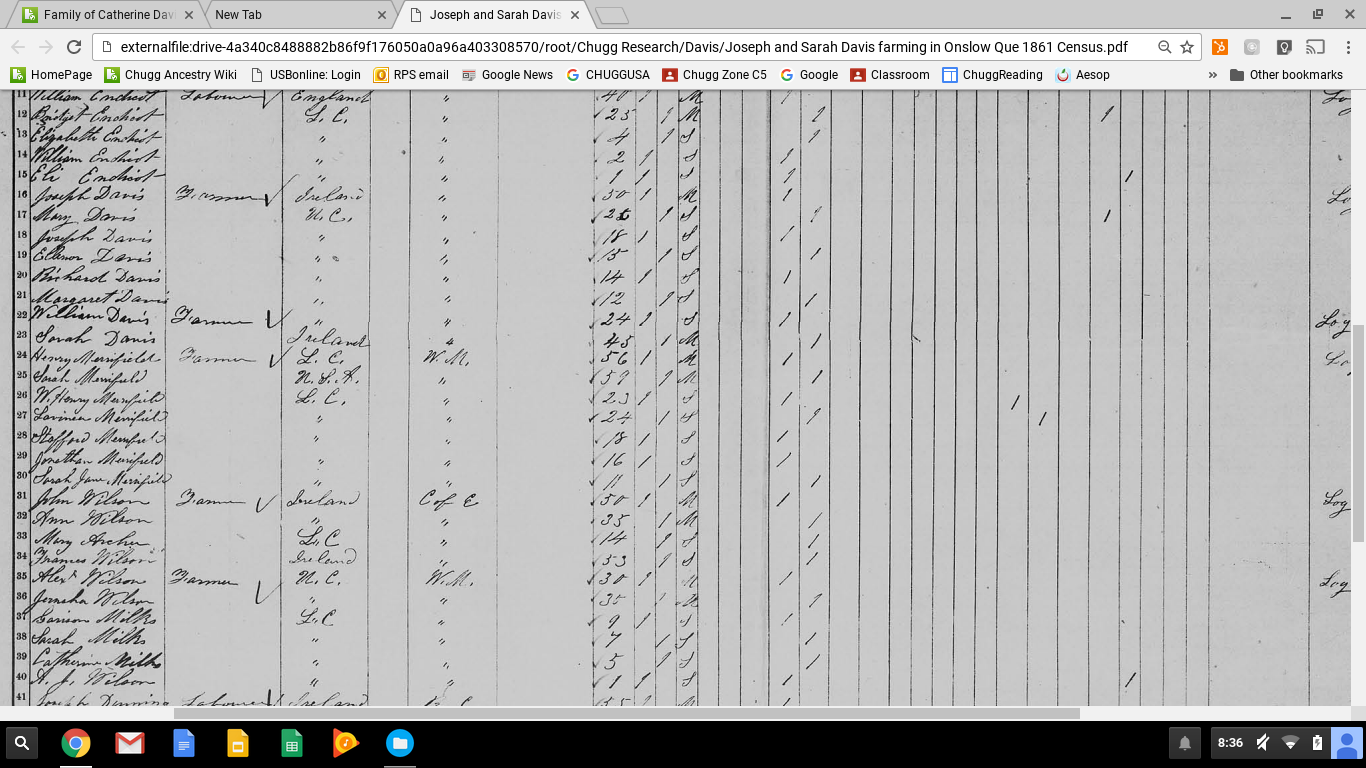 Family of Catherine Dav
New Tab
Joseph and Sarah Davis
externalfile:drive-4a340c8488882b86f9f176050a0a96a403308570/root/Chugg Research/Davis/Joseph and Sarah Davis farming in Onslow Que 1861 Census.pdf
HomePage Chugg Ancestry Wiki USBonline: Login RPS email Google News CHUGGUSA Chugg Zone C5 Google Classroom ChuggReading Aesop » Other bookmarks
11 William Endicot Labourer England " 40 1 M 1
12 Bridget Endicot L. C. " 23 1 M 1 1
13 Elizabeth Endicot " " 4 1 S 1
14 William Endicot " " 2 1 S 1
15 Eli Endicot " " 1 1 S 1 1
16 Joseph Davis Farmer Ireland " 50 1 M 1
17 Mary Davis U. C. " 1 S 1 1
18 Joseph Davis " " 18 1 S 1
19 Elanor Davis " " 15 1 S 1
20 Richard Davis " " 14 1 S 1
21 Margaret Davis " " 12 1 S 1
22 William Davis Farmer " " 24 1 S 1 Log
23 Sarah Davis Ireland " 45 1 M 1
24 Henry Merrifield Farmer L. C. W. M. 56 1 M 1
25 Sarah Merrifield U. S. A. " 59 1 M 1
26 W. Henry Merrifield L. C. " 23 1 S 1 1
27 Lavinea Merrifield " " 24 1 S 1 1
28 Stafford Merrifield " " 18 1 S 1
29 Jonathan Merrifield " " 16 1 S 1
30 Sarah Jane Merrifield " " 11 1 S 1
31 John Wilson Farmer Ireland C of E 50 1 M 1 Log
32 Ann Wilson " " 35 1 M 1
33 Mary Archer L. C " 14 1 S 1
34 Frances Wilson Ireland " 53 1 S 1
35 Alexr Wilson Farmer U. C. W. M. 30 1 M 1 Log
36 Wilson " " 35 1 M 1
37 Milks L. C " 9 1 S 1
38 Sarah Milks " " 7 1 S 1
39 Catherine Milks " " 5 1 S 1
40 A. J. Wilson " " 1 1 S 1 1
41 Labourer Ireland
8:36